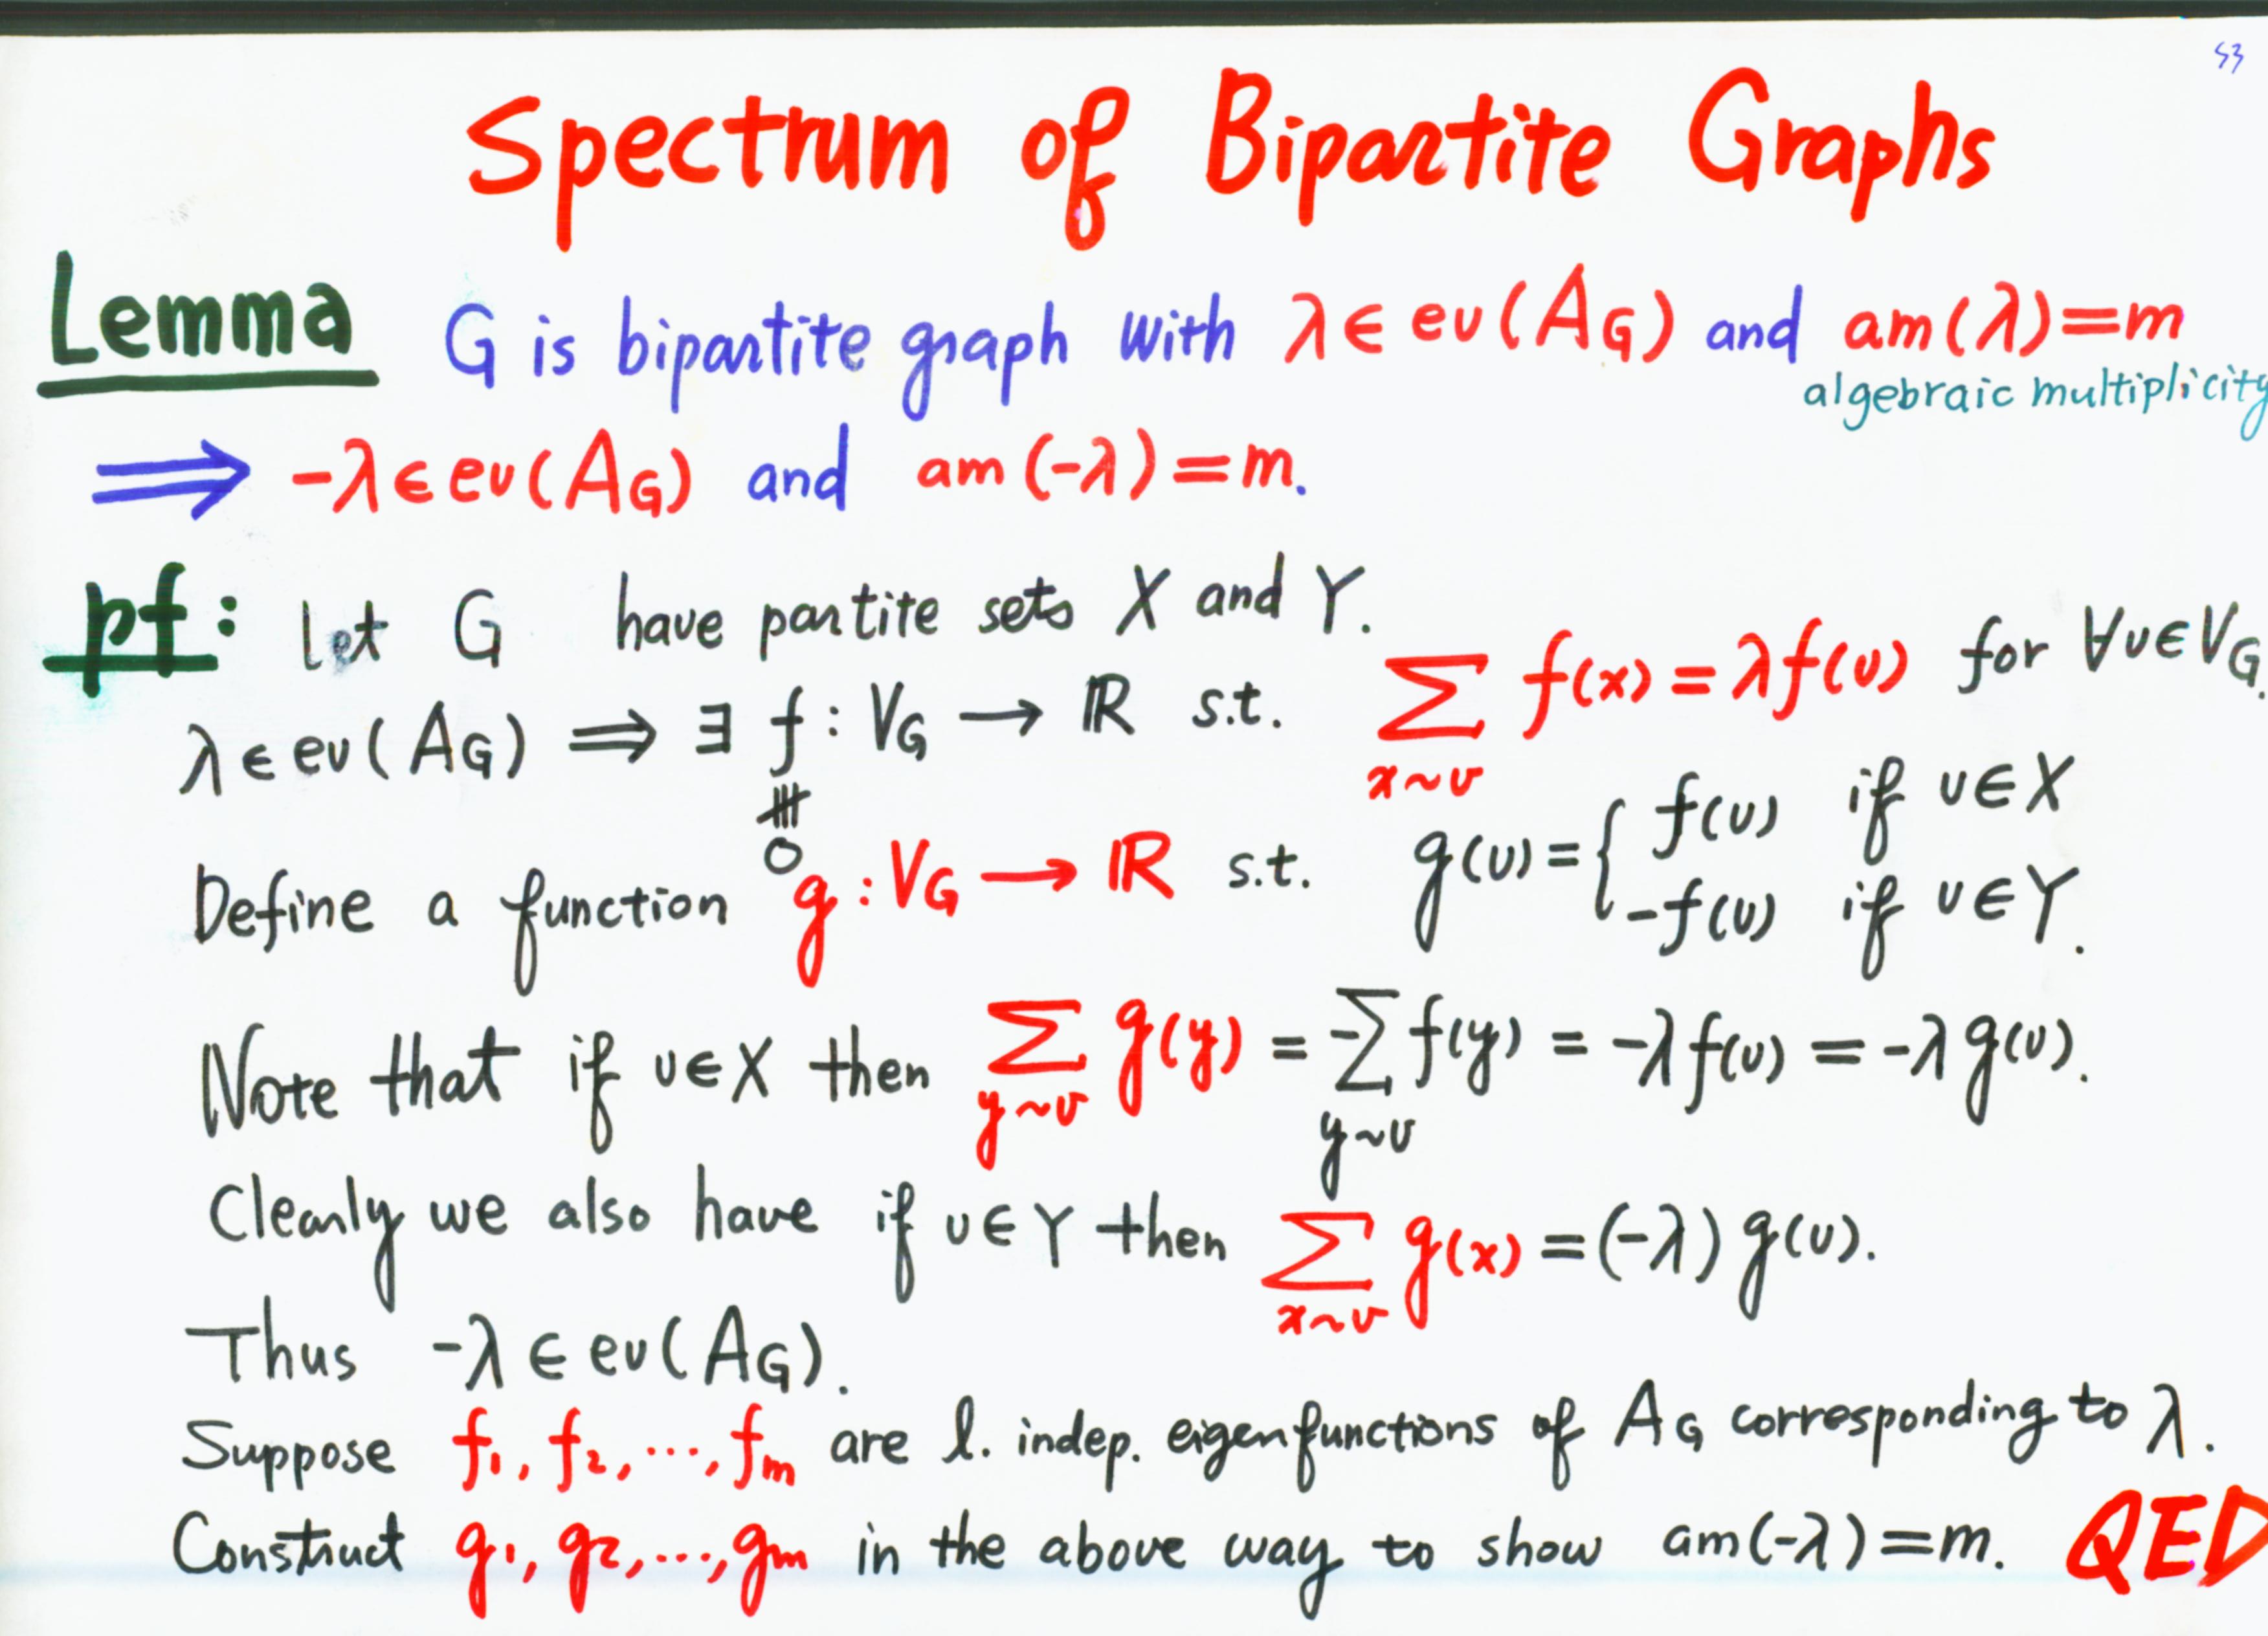 53
Spectrum of Bipartite Graphs
Lemma G is bipartite graph with λ∈ev(A_G) and am(λ)=m
algebraic multiplicity
⟹ -λ∈ev(A_G) and am(-λ)=m.
pf: Let G have partite sets X and Y.
λ∈ev(A_G) ⟹ ∃ f:V_G → ℝ s.t. ∑ f(x) = λf(v) for ∀v∈V_G.
≢ 0 x~v
Define a function g:V_G → ℝ s.t. g(v)= { f(v) if v∈X
-f(v) if v∈Y.
Note that if v∈X then ∑ g(y) = -∑ f(y) = -λf(v) = -λg(v).
y~v y~v
Clearly we also have if v∈Y then ∑ g(x) = (-λ) g(v).
x~v
Thus -λ∈ev(A_G).
Suppose f₁, f₂, ..., fₘ are l. indep. eigenfunctions of A_G corresponding to λ.
Construct g₁, g₂, ..., gₘ in the above way to show am(-λ)=m. QED